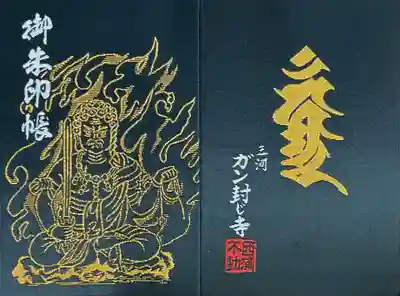 御朱印帳
三河
ガン封じ寺
西浦
不動